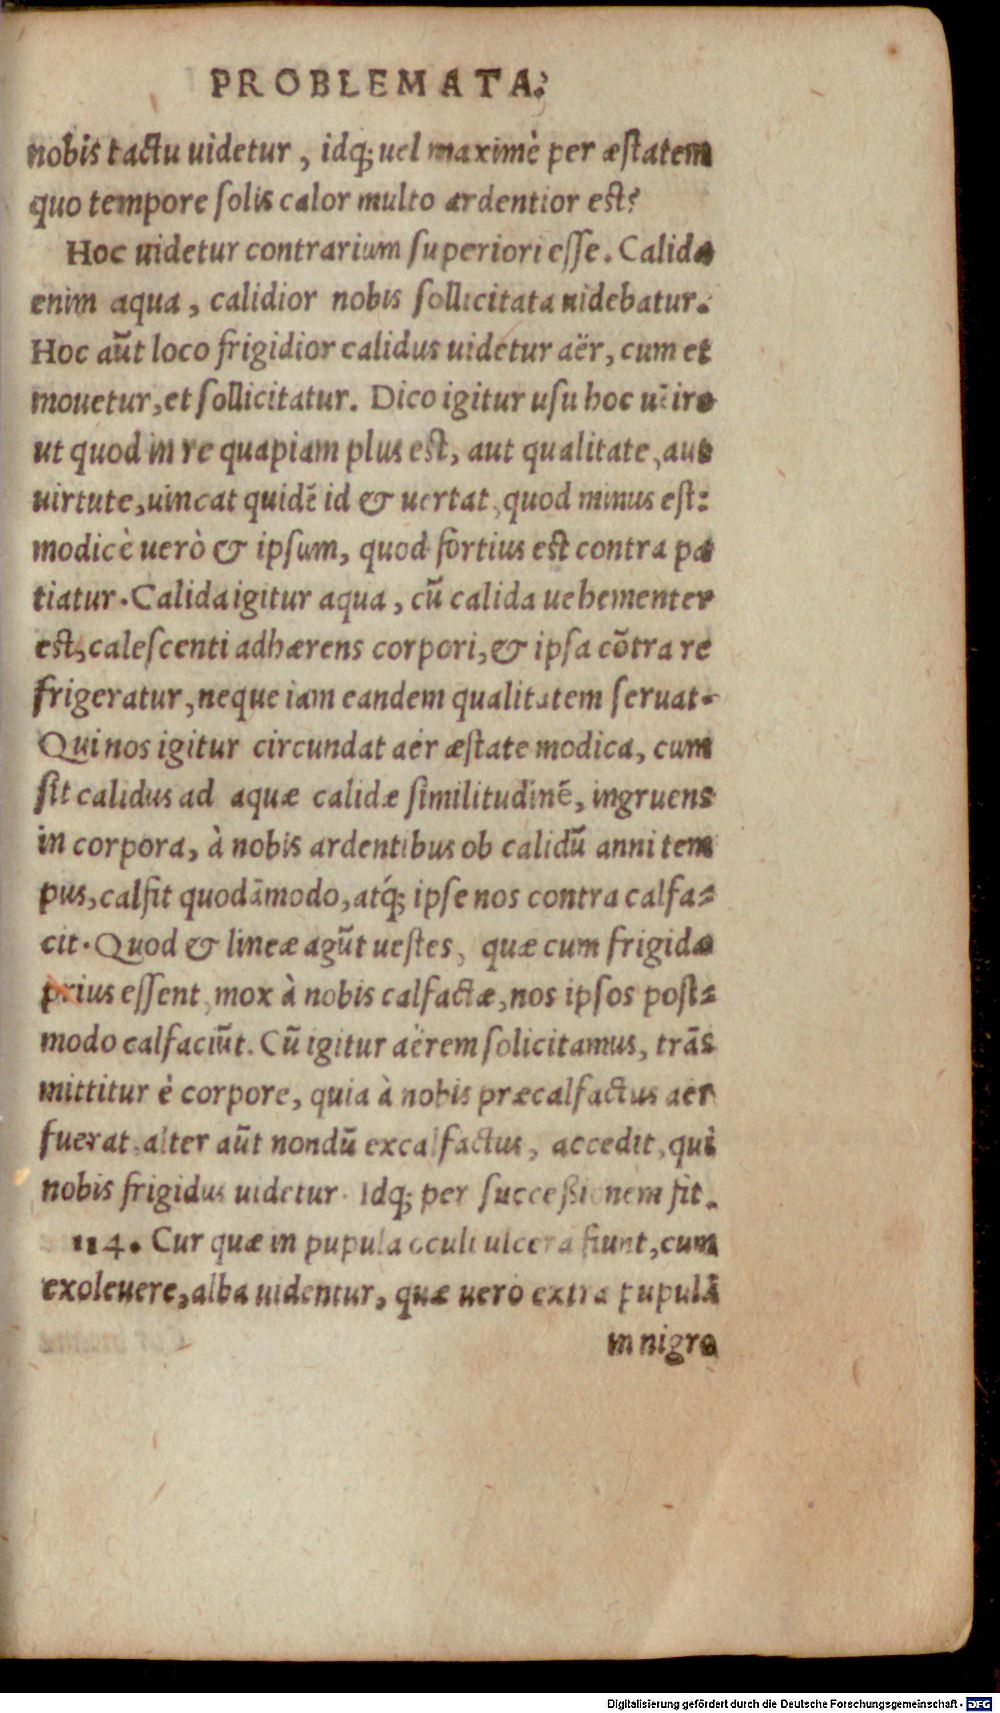 PROBLEMATA.
nobis tactu uidetur, idq; uel maximè per æstatem
quo tempore solis calor multo ardentior est?
Hoc uidetur contrarium superiori esse. Calida
enim aqua, calidior nobis sollicitata uidebatur.
Hoc aūt loco frigidior calidus uidetur aër, cum et
mouetur, et sollicitatur. Dico igitur usu hoc uẽire
ut quod in re quapiam plus est, aut qualitate, aut
uirtute, uincat quidẽ id & uertat, quod minus est:
modicè uerò & ipsum, quod fortius est contra pa
tiatur. Calida igitur aqua, cū calida uehementer
est, calescenti adhærens corpori, & ipsa cōtra re
frigeratur, neque iam eandem qualitatem seruat.
Qui nos igitur circundat aer æstate modica, cum
sit calidus ad aquæ calidæ similitudinẽ, ingruens
in corpora, à nobis ardentibus ob calidū anni tem
pus, calfit quodāmodo, atq́; ipse nos contra calfa-
cit. Quod & lineæ agūt uestes, quæ cum frigidæ
prius essent, mox à nobis calfactæ, nos ipsos post-
modo calfaciūt. Cū igitur aërem solicitamus, trās
mittitur è corpore, quia à nobis præcalfactus aer
fuerat, alter aūt nondū excalfactus, accedit, qui
nobis frigidus uidetur. Idq; per successionem fit.
114. Cur quæ in pupula oculi ulcera fiunt, cum
exoleuere, alba uidentur, quæ uero extra pupulā
in nigro
Digitalisierung gefördert durch die Deutsche Forschungsgemeinschaft - DFG